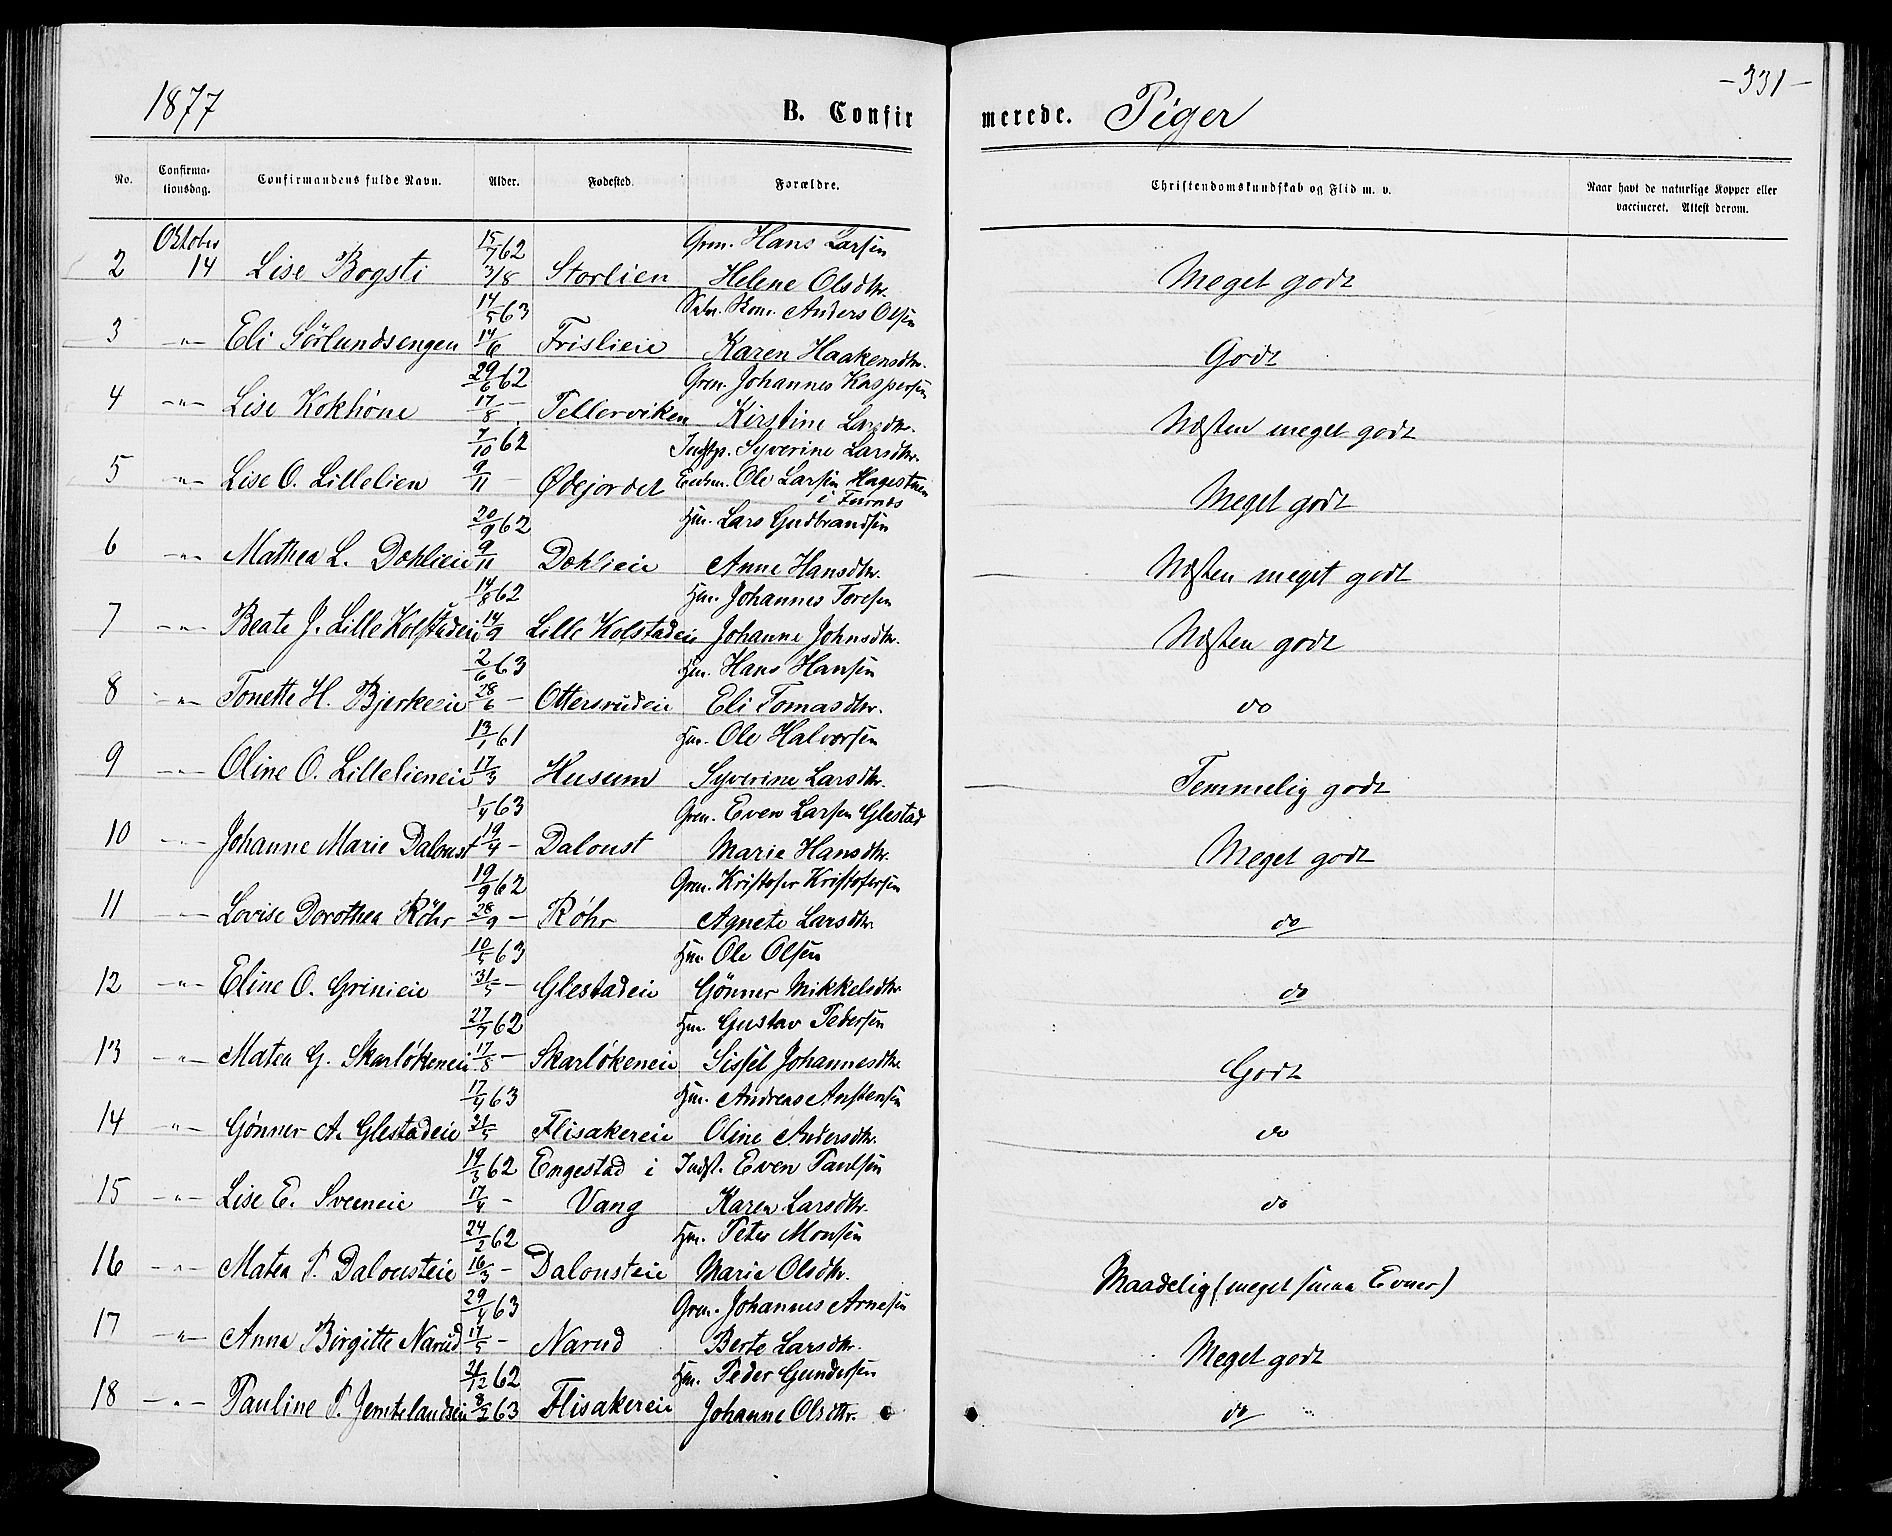 1877 B. Confirmerede. Piger -331-
No. Confirmationsdag. Confirmandens fulde Navn. Alder. Fødested. Forældre. Christendomskundskab og Flid m. v. Naar havt de naturlige Kopper eller vaccineret. Attest derom.
Oktober 15/7 62 Grm. Hans Larsen
2 14 Lise Bogsti 3/8 Storlien Helene Olsdtr. Meget godt
14/5 63 Anders Olsen
3 -"- Eli Sörlundsengen 14/6 Frislieie Karen Haakensdtr. Godt
29/6 62 Grm. Johannes Kaspersen
4 -"- Lise Kokhöne 17/8 - Tellerviken Kirstine Larsdtr. Næsten meget godt
7/10 62 Syverine Larsdtr.
5 -"- Lise O. Lillelien 9/11 - Ødejordet Ole Larsen Hagestuen Meget godt
i Furnes
20/9 62 Hm. Lars Gudbrandsen
6 -"- Mathea L. Dæhlieie 9/11 Dæhlieie Anne Hansdtr. Næsten meget godt
14/8 62 Hm. Johannes Toresen
7 -"- Beate J. Lille Kolstadeie 14/9 Lille Kolstadeie Johanne Johnsdtr. Næsten godt
2/6 63 Hm. Hans Hansen
8 -"- Tonette H. Bjerkeeie 28/6 - Ottersrudeie Eli Tomasdtr. do
13/1 61 Hm. Ole Halvorsen
9 -"- Oline O. Lillelieneie 17/3 Husum Syverine Larsdtr. Temmelig godt
1/4 63 Grm. Even Larsen Glestad
10 -"- Johanne Marie Daloust 19/4 - Daloust Marie Hansdtr. Meget godt
19/9 62 Grm. Kristofer Kristofersen
11 -"- Lovise Dorothea Röhr 28/9 - Röhr Agnete Larsdtr. do
10/5 63 Hm. Ole Olsen
12 -"- Eline O. Grinieie 31/5 - Glestadeie Gönner Mikkelsdtr do
27/7 62 Hm. Gustav Pedersen
13 -"- Matea G. Skarlökeneie 17/8 - Skarlökeneie Sissel Johannesdtr Godt
17/4 63 Hm. Andreas Anstensen
14 -"- Gönner A. Glestadeie 31/5 Flisakereie Oline Andersdtr. do
19/3 62 Engestad i Indst. Even Paulsen
15 -"- Lise E. Sveeneie 17/4 - Vang Karen Larsdtr. do
24/2 62 Hm. Peter Monsen
16 -"- Matea P. Dalousteie 16/3 - Dalousteie Marie Olsdtr. Maadelig (meget smaa Evner)
29/4 63 Grm. Johannes Arnesen
17 -"- Anna Birgitte Narud 17/5 - Narud Berte Larsdtr. Meget godt
21/12 62 Hm. Peder Gundersen
18 -"- Pauline P. Jemtelandseie 8/2 63 Flisakereie Johanne Olsdtr. do